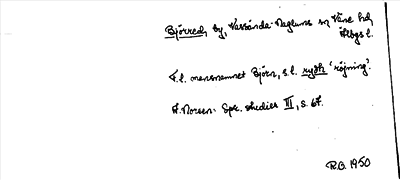 Björred, by, Vassända-Naglums sn, Väne hd
Älvbgs l.
F.l. mansnamnet Björn, s.l. rydh 'röjning'.
A. Noreen. Spr. studier III, s. 67.
R.G. 1950